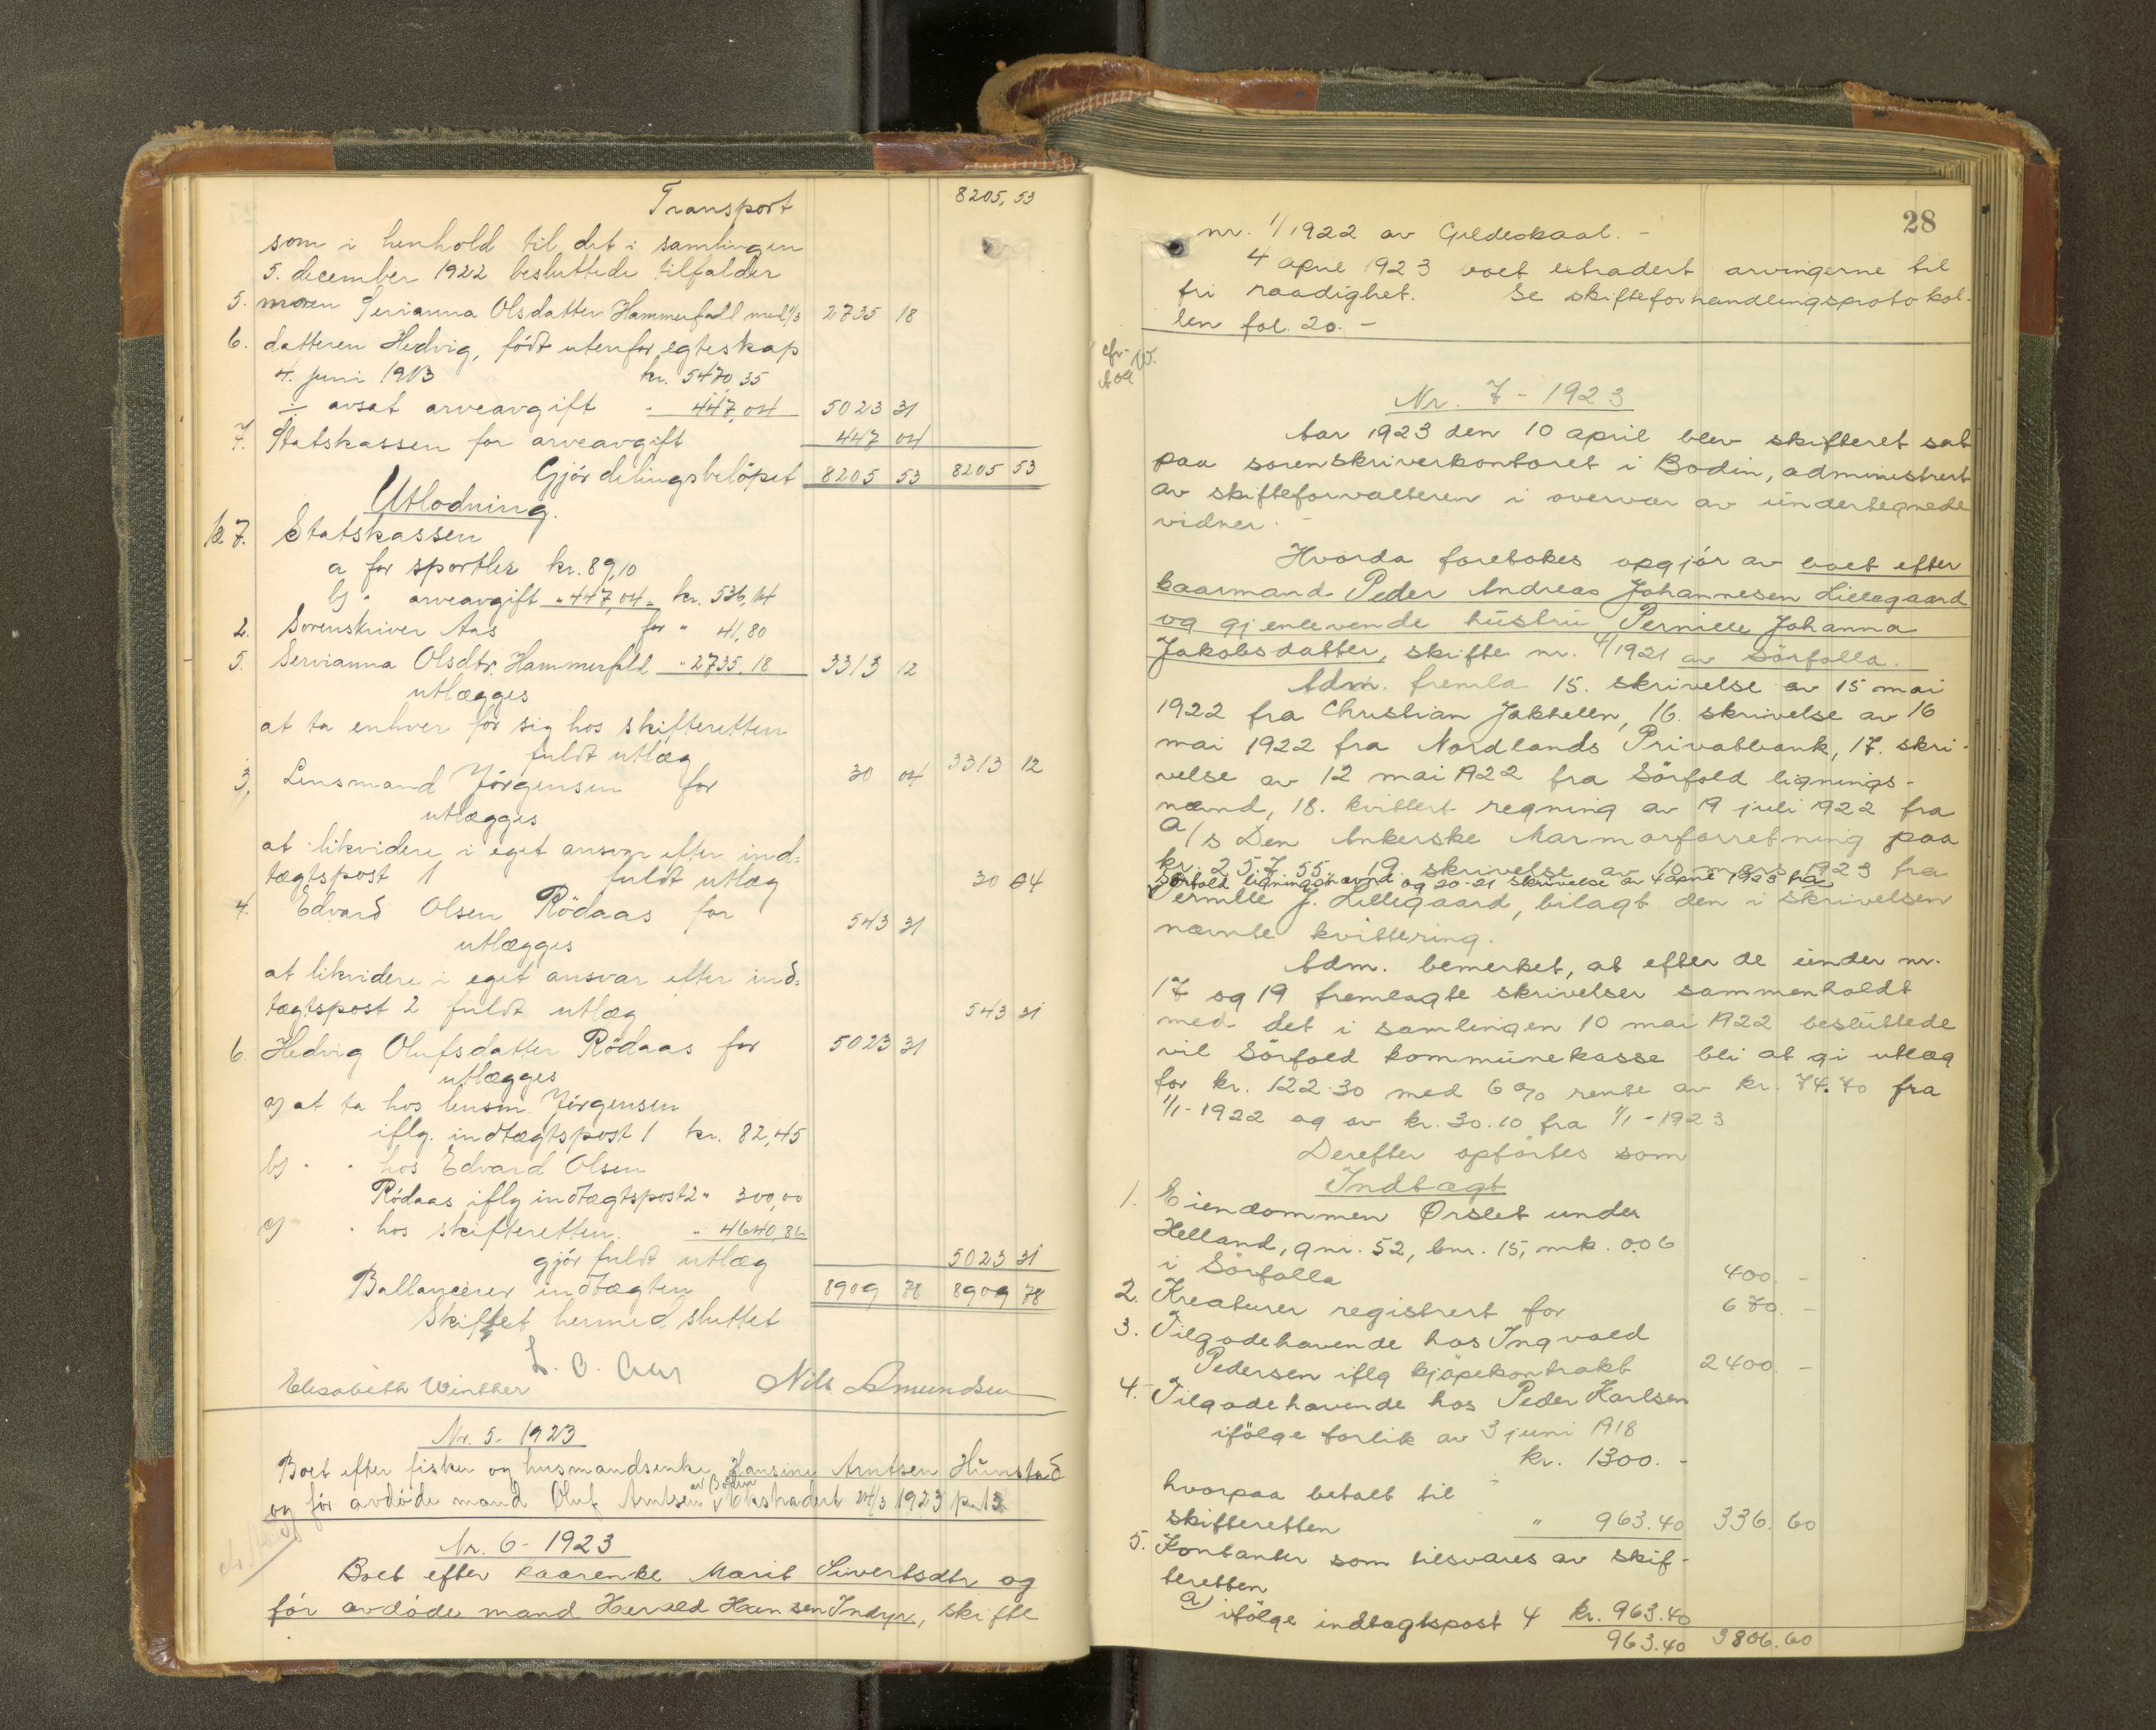 Transport 8205,53
som i henhold til det i samlingen
5. december 1922 besluttede tilfalder
5. moren Servianna Olsdatter Hammerfall med 1/3 2735 18
6. datteren Hedvig, født utenfor egteskap
4. juni 1913 kr. 5470,35
÷ avsat arveavgift " 447,04 5023 31
7. Statskassen for arveavgift 447 04
Gjør delingsbeløpet 8205 53 8205 53
Utlodning.
1 & 7. Statskassen
a for sportler kr. 89,10
b) " arveavgift " 447,04 = kr. 536,14
2. Sorenskriver Aas for " 41,80
5. Servianna Olsdtr. Hammerfall " 2735,18 3313 12
utlægges
at ta enhver for sig hos skifteretten
fuldt utlæg 3313 12
3. Lensmand Jørgensen for 30 04
utlægges
at likvidere i eget ansvar efter ind=
tægtspost 1 fuldt utlæg 30 04
4. Edvard Olsen Rödaas for 543 31
utlægges
at likvidere i eget ansvar efter ind=
tægtspost 2 fuldt utlæg 543 31
6. Hedvig Olufsdatter Rödaas for 5023 31
utlægges
a) at ta hos lensm. Jørgensen
iflg. indtægtspost 1 kr. 82,45
b) " " hos Edvard Olsen
Rödaas iflg indtægtspost 2 " 300,00
c) " hos skifteretten. " 4640,86
gjør fuldt utlæg 5023 31
Ballancerer indtægten 8909 78 8909 78
Skiftet hermed sluttet
L. O. Aas
Elisabeth Winther Nils Amundsen
Nr. 5 - 1923
Boet efter fisker og husmandsenke Hansine Arntsen Hunstad
og før avdøde mand Oluf Arntsen av Bodin ekstradert 24/3 1923 p. 13
Nr. 6 - 1923
Boet efter kaarenke Marit Sivertsdtr og
før avdøde mand Harald Hansen Indyr, skifte
28
nr. 1/1922 av Gildeskaal. -
4 april 1923 boet extradert arvingerne til
fri raadighet. Se skifteforhandlingsprotokol-
len fol. 20. -
Nr. 7 - 1923
Aar 1923 den 10 april blev skifteret sat
paa sorenskriverkontoret i Bodin, administrert
av skifteforvalteren i overvær av undertegnede
vidner. -
Hvorda foretokes opgjör av boet efter
kaarmand Peder Andreas Johannesen Lillegaard
og gjenlevende hustru Pernille Johanna
Jakobsdatter, skifte nr. 4/1921 av Sörfolla.
Adm. fremla 15. skrivelse av 15 mai
1922 fra Christian Jakhelln, 16. skrivelse av 16
mai 1922 fra Nordlands Privatbank, 17. skri-
velse av 12 mai 1922 fra Sörfold lignings-
nævnd, 18. kvittert regning av 19 juli 1922 fra
A/s Den Ankerske Marmorforretning paa
kr. 257.55, 19. skrivelse av 10 mars 1923 fra
Sörfold ligningsnævnd og 20-21 skrivelse av 4 april 1923 fra
Pernille J. Lillegaard, bilagt den i skrivelsen
nævnte kvittering.
Adm. bemerket, at efter de under nr.
17 og 19 fremlagte skrivelser sammenholdt
med det i samlingen 10 mai 1922 besluttede
vil Sörfold kommunekasse bli at gi utlæg
for kr. 122.30 med 6 % rente av kr. 74.70 fra
1/1-1922 og av kr. 30.10 fra 1/1-1923
Derefter opførtes som
Indtægt
1. Eiendommen Ørslet under
Helland, gnr. 52, bnr. 15, mk. 0.06
i Sörfolla 400. -
2. Kreaturer registrert for 670. -
3. Tilgodehavende hos Ingvald
Pedersen iflg kjøpekontrakt 2400. -
4. Tilgodehavende hos Peder Karlsen
ifölge forlik av 3 juni 1918
kr. 1300. -
hvorpaa betalt til
skifteretten " 963.40 336.60
5. Kontanter som tilsvares av skif-
teretten
a) ifölge indtægtspost 4 kr. 963.40
963.40 3806.60